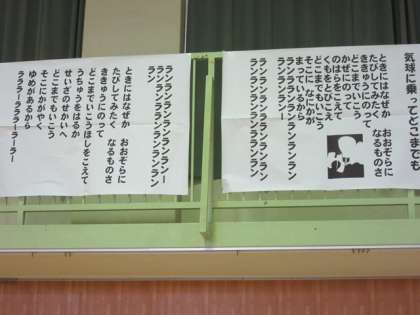 気球に乗ってどこまでも
ときにはなぜか　おおぞらに
たびしてみたく　なるものさ
ききゅうにのって
どこまでいこう
かぜにのって
のはらをこえて
くもをとびこえ
どこまでもいこう
そこになにかが
まっているから
ランランランランランランラン
ランランランランラン
ランランランランランランラン
ランランランランランランー
ラン
ランランランランランランラン
ランランランランランー
ラン
ときにはなぜか　おおぞらに
たびしてみたく　なるものさ
ききゅうにのって
どこまでいこうほしをこえて
うちゅうをはるか
せいざのせかいへ
どこまでもいこう
そこにかがやく
ゆめがあるから
ラララーララララーラーラー